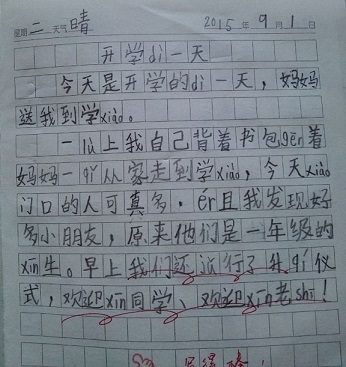 星期二 天气晴 2015年9月1日
开学dì一天
今天是开学的dì一天，妈妈
送我到学xiào。
一lù上我自己背着书包gēn着
妈妈一qǐ从家走到学xiào，今天xiào
门口的人可真多．ér且我发现好
多小朋友，原来他们是一年级的
xīn生。早上我们还举行了升qí仪
式，欢迎xīn同学、欢迎xīn老shī！